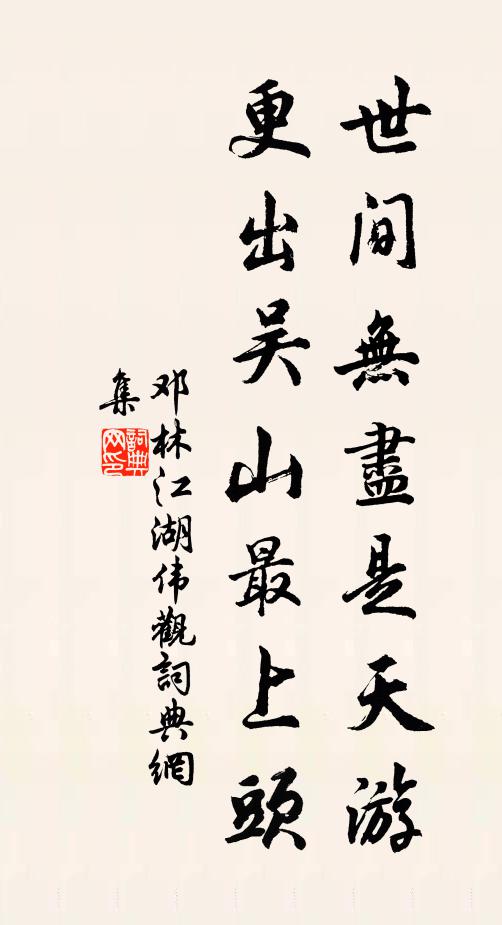 世间無盡是天游
更出吴山最上頭
邓林江湖伟觀詞典網
集
詞典
网印